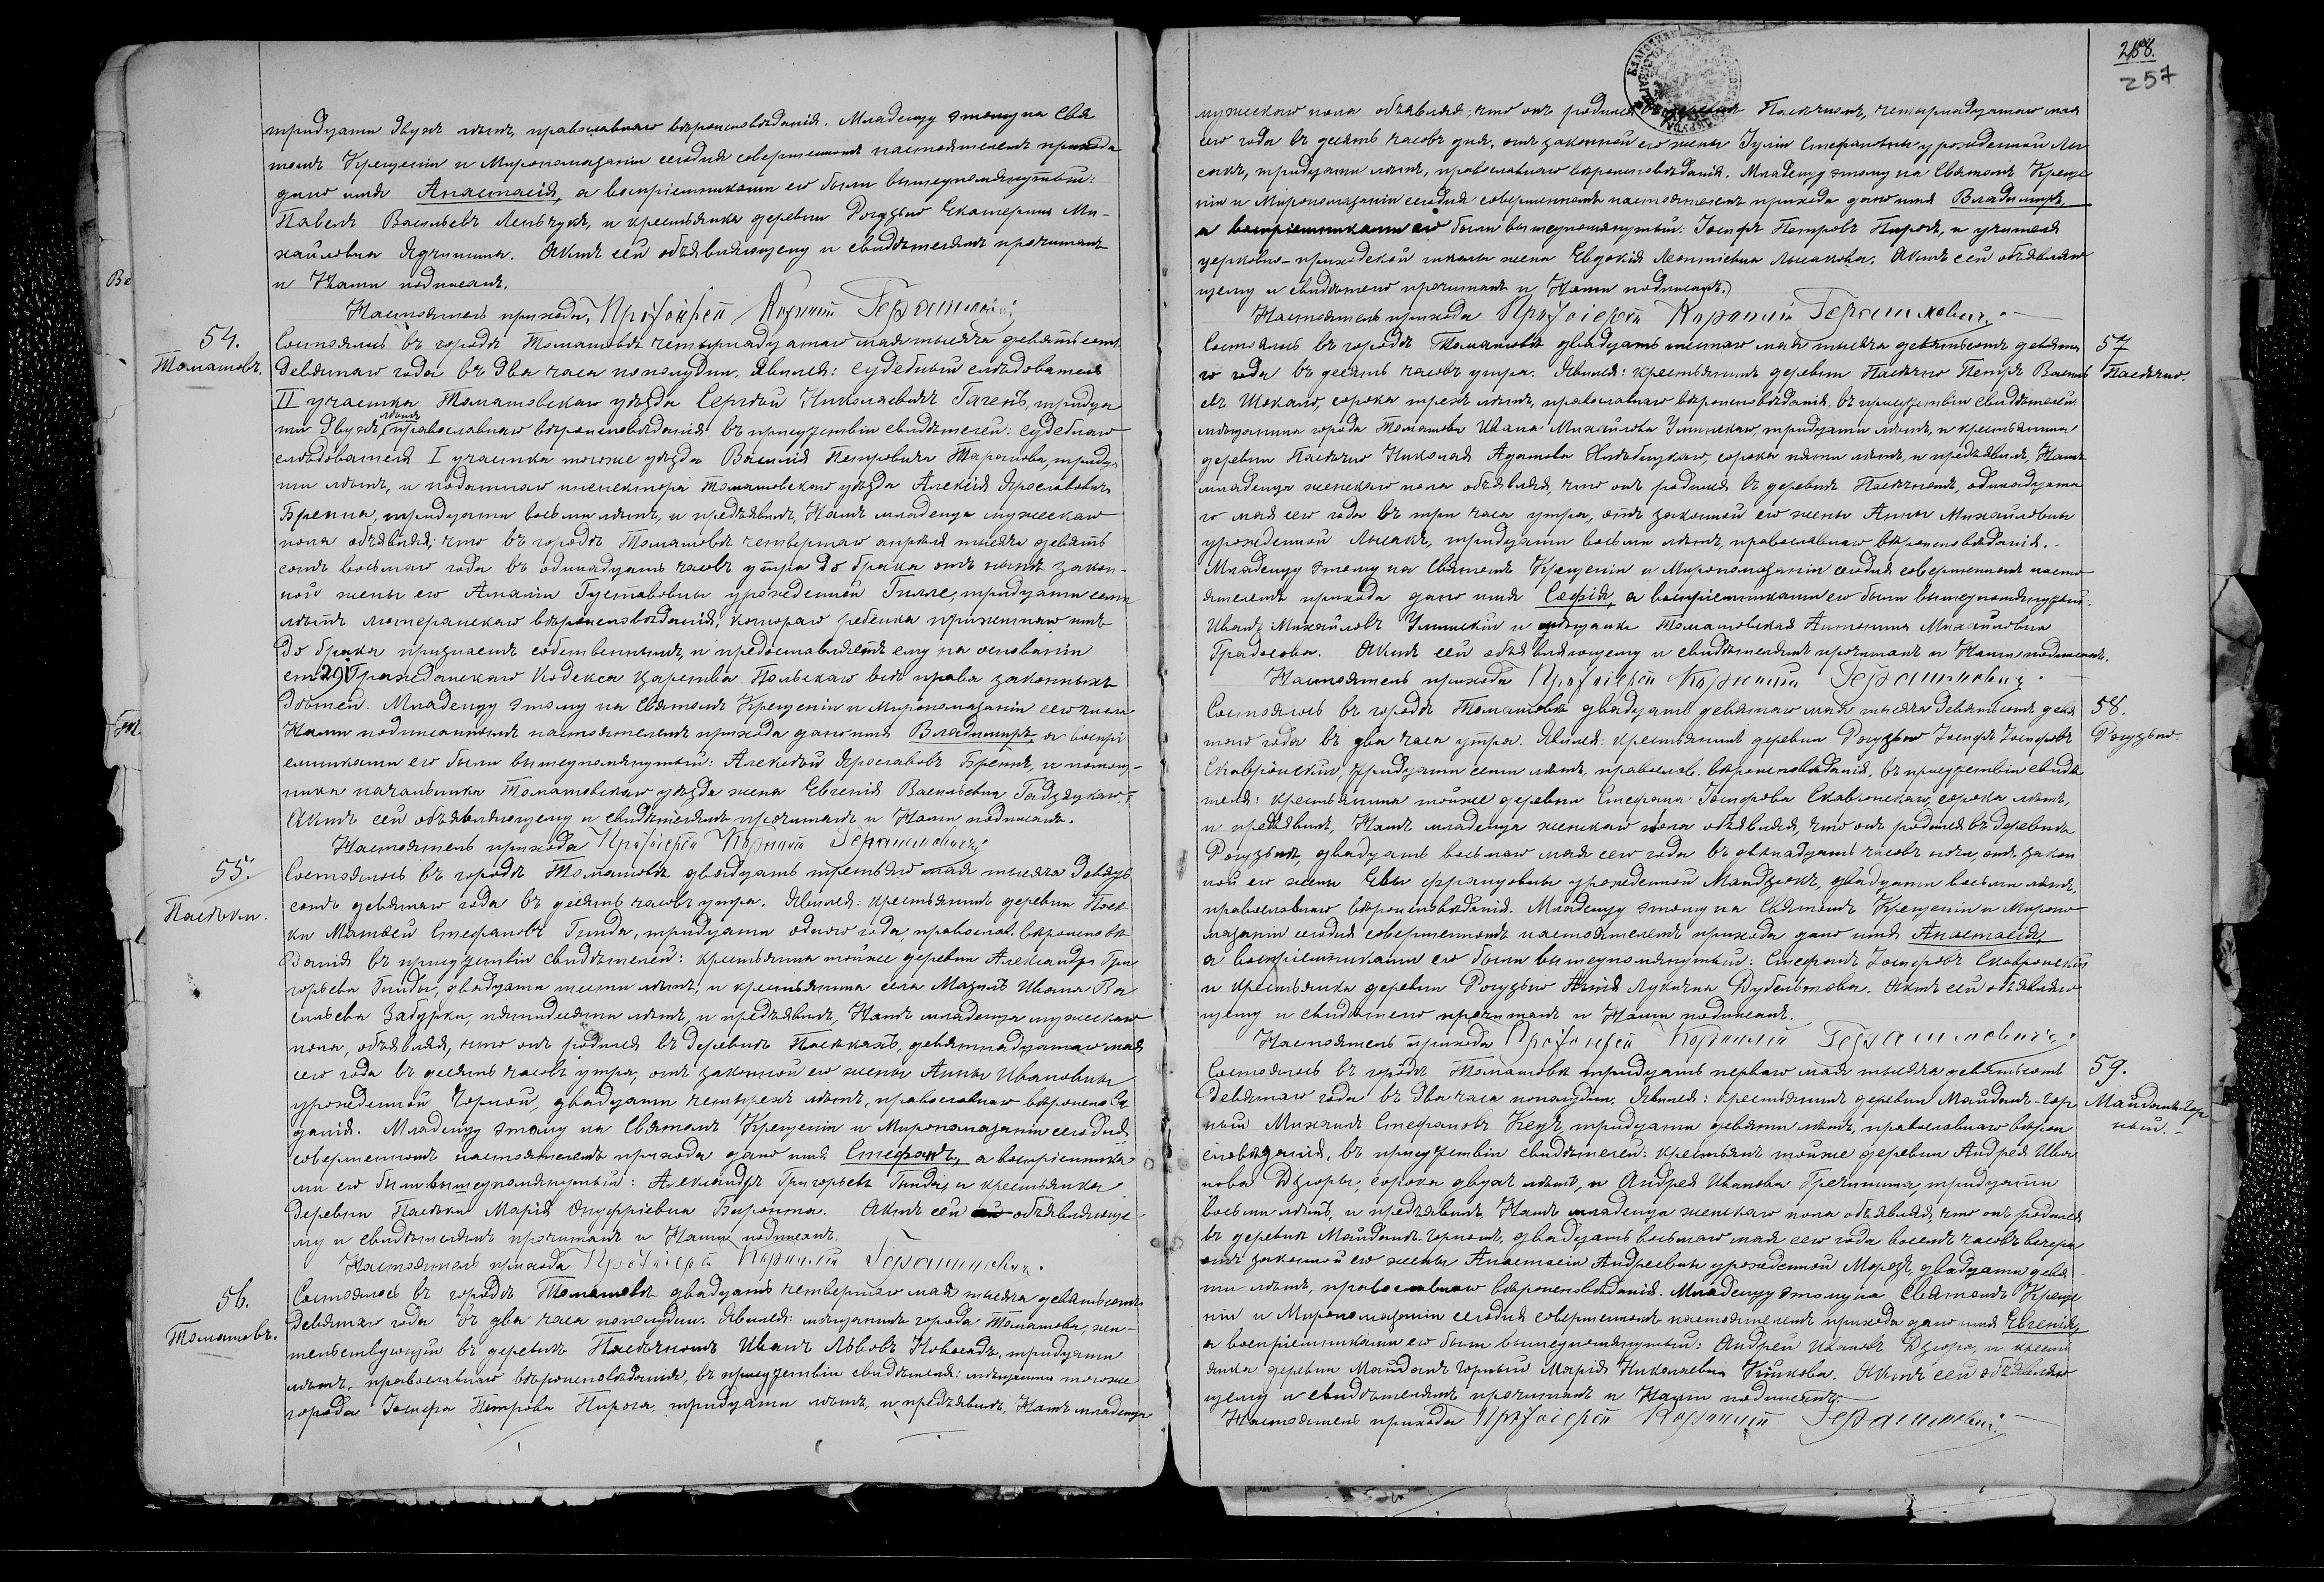 тридцати двухъ лѣтъ, православнаго вѣроисповѣданія. Младенцу этому на Свя
томъ Крещеніи и Миропомазаніи сегодня совершенномъ настоятелемъ прихода
дано имя Анастасія, а воспріемниками его были вышеупомянутый:
Павелъ Васильевъ Леньчукъ, и крестьянка деревни Рогузьно Екатерина Ми-
хайловна Ядчишина. Актъ сей объявляющему и свидѣтелямъ прочитанъ
и Нами подписанъ.
Настоятель прихода, Протоіерей Корнилій Герашимовичъ
54.
Томашовъ.
Состоялось въ городѣ Томашовѣ четырнадцатаго мая тысяча девятьсотъ
девятаго года въ два часа пополудни. Явился: судебный слѣдователь
II участка Томашовскаго уѣзда Сергѣй Николаевичъ Гагенъ, тридца
ти двухъ лѣтъ православнаго вѣроисповѣданія, въ присутствіи свидѣтелей: судебнаго
слѣдователя I участка тогоже уѣзда Василія Петровича Тарапова, тридца
ти лѣтъ, и податнаго инспектора Томашовскаго уѣзда Алексія Ярославовича
Бренна, тридцати восьми лѣтъ, и предъявилъ, Намъ младенца мужескаго
пола объявляя; что въ городѣ Томашовѣ четвертаго апрѣля тысяча девять
сотъ восьмаго года въ одинадцать часовъ утра до брака отъ нынѣ закон-
ной жены его Амаліи Густавовны урожденной Гилле, тридцати семи
лѣтъ лютеранскаго вѣроисповѣданія, котораго ребенка прижитаго имъ
до брака признаетъ собственнымъ, и предоставляетъ ему на основаніи
ст. 291 Гражданскаго Кодекса Царства Польскаго всѣ права законныхъ
дѣтей. Младенцу этому на Святомъ Крещеніи и Миропомазаніи сего числа
Нами подписаннымъ настоятелемъ прихода дано имя Владимиръ, а воспрі
емниками его были вышеупомянутый: Алексѣй Ярославовъ Бреннъ, и помощ-
ника начальника Томашовскаго уѣзда жена Евгенія Васильевна Гадзяцкая.
Актъ сей объявляющему и свидѣтелямъ прочитанъ и Нами подписанъ.
Настоятель прихода Протоіерей Корнилій Герашимовичъ
55.
Пасѣки.
Состоялось въ городѣ Томашовѣ двадцать третьяго мая тысяча девять
сотъ девятаго года въ десять часовъ утра. Явился: крестьянинъ деревни Пасѣ-
ки Матѳей Стефановъ Гнида, тридцати одного года, православ. вѣроисповѣ
данія въ присутствіи свидѣтелей: крестьянина тойже деревни Александра Гри
горьева Гниды, двадцати шести лѣтъ, и крестьянина села Мазилъ Ивана Ва
сильева Забурки, пятидесяти лѣтъ, и предъявилъ, Намъ младенца мужескаго
пола, объявляя, что онъ родился въ деревнѣ Пасѣкахъ, девятнадцатаго мая
сего года въ десять часовъ утра, отъ законной его жены Анны Ивановны
урожденной Чорной, двадцати четырехъ лѣтъ, православнаго вѣроисповѣ
данія. Младенцу этому на Святомъ Крещеніи и Миропомазаніи сегодня
совершенномъ настоятелемъ прихода дано имя Стефанъ, а воспріемника
ми его были вышеупомянутый: Александръ Григорьевъ Гнида, и крестьянка
деревни Пасѣки Марія Онуфріевна Биронта. Актъ сей объявляюще
му и свидѣтелямъ прочитанъ и Нами подписанъ.
Настоятель прихода Протоіерей Корнилій Герашимовичъ.
56.
Томашовъ.
Состоялось въ городѣ Томашовѣ двадцать четвертаго мая тысяча девятьсотъ
девятаго года въ два часа пополудни. Явился: мѣщанинъ города Томашова, жи-
тельствующій въ деревнѣ Пасѣчномъ Иванъ Львовъ Новосадъ, тридцати
лѣтъ, православнаго вѣроисповѣданія, въ присутствіи свидѣтеля: мѣщанина тогоже
города Іосифа Петрова Пирога, тридцати лѣтъ, и предъявилъ, Намъ младенца
258.
257
мужескаго пола объявляя; что онъ родился Пасѣчномъ, четырнадцатаго мая
сего года въ десять часовъ дня, отъ законной его жены Іуліи Стефановны урожденной Лы
сакъ, тридцати лѣтъ, православнаго вѣроисповѣданія. Младенцу этому на Святомъ Креще
ніи и Миропомазаніи сегодня совершенномъ настоятелемъ прихода дано имя Владимиръ,
а воспріемниками его были вышеупомянутый: Іосифъ Петровъ Пирогъ, и учителя
церковно-приходской школы жена Евдокія Леонтіевна Лысакова. Актъ сей объявляю
щему и свидѣтелю прочитанъ и Нами подписанъ.
Настоятель прихода Протоіерей Корнилій Герашимовичъ.
57
Пасѣчно.
Состоялось въ городѣ Томашовѣ двадцать шестаго мая тысяча девятьсотъ девята
го года въ десять часовъ утра. Явился: крестьянинъ деревни Пасѣчно Петръ Василь
евъ Шокало, сорока трехъ лѣтъ, православнаго вѣроисповѣданія, въ присутствіи свидѣтелей:
мѣщанина города Томашова Ивана Михайлова Улинскаго, тридцати лѣтъ, и крестьянина
деревни Пасѣчно Николая Адамова Нивѣницкаго, сорока пяти лѣтъ, и предъявилъ, Намъ
младенца женскаго пола объявляя, что онъ родился въ деревнѣ Пасѣчномъ, одинадцата
го мая сего года въ три часа утра, отъ законной его жены Анны Михайловны
урожденной Лысакъ, тридцати восьми лѣтъ, православнаго вѣроисповѣданія.
Младенцу этому на Святомъ Крещеніи и Миропомазаніи сегодня совершенномъ насто
ятелемъ прихода дано имя Софія, а воспріемниками его были вышеупомянутый:
Иванъ Михайловъ Улинскій и мѣщанка Томашовская Антонина Михайловна
Градосова. Актъ сей объявляющему и свидѣтелямъ прочитанъ и Нами подписанъ.
Настоятель прихода Протоіерей Корнилій Герашимовичъ.
58.
Рогузьно.
Состоялось въ городѣ Томашовѣ двадцать девятаго мая тысяча девятьсотъ девя
таго года въ два часа утра. Явился: крестьянинъ деревни Рогузьно Іосифъ Іосифовъ
Скавронскій, тридцати семи лѣтъ, православ. вѣроисповѣданія, въ присутствіи свидѣ
теля: крестьянина тойже деревни Стефана Іосифова Скавронскаго, сорока лѣтъ,
и предъявилъ, Намъ младенца женскаго пола объявляя, что онъ родился въ деревнѣ
Рогузьнѣ, двадцать восьмаго мая сего года въ двѣнадцать часовъ ночи, отъ закон
ной его жены Евы Францовны урожденной Мандзюкъ, двадцати восьми лѣтъ,
православнаго вѣроисповѣданія. Младенцу этому на Святомъ Крещеніи и Миропо
мазаніи сегодня совершенномъ настоятелемъ прихода дано имя Анастасія,
а воспріемниками его были вышеупомянутый: Стефанъ Іосифовъ Скавронскій
и крестьянка деревни Рогузьно Анна Лукична Дубельтова. Актъ сей объявляю
щему и свидѣтелю прочитанъ и Нами подписанъ.
Настоятель прихода Протоіерей Корнилій Герашимовичъ.
59.
Майданъ-Гор
ный.
Состоялось въ городѣ Томашовѣ тридцать перваго мая тысяча девятьсотъ
девятаго года въ два часа пополудни. Явился: крестьянинъ деревни Майданъ-Гор
ный Михаилъ Стефановъ Кецъ, тридцати девяти лѣтъ, православнаго вѣрои
сповѣданія, въ присутствіи свидѣтелей: крестьянъ тойже деревни Андрея Ива
нова Дзюры, сорока двухъ лѣтъ, и Андрея Иванова Гречишина, тридцати
восьми лѣтъ, и предъявилъ, Намъ младенца женскаго пола объявляя, что онъ родился
въ деревнѣ Майданѣ-Горномъ, двадцать восьмаго мая сего года восемь часовъ вечера
отъ законной его жены Анастасіи Андреевны урожденной Морозъ, двадцати девя-
ти лѣтъ, православнаго вѣроисповѣданія. Младенцу этому на Святомъ Креще
ніи и Миропомазаніи сегодня совершенномъ настоятелемъ прихода дано имя Евгенія,
а воспріемниками его были вышеупомянутый: Андрей Ивановъ Дзюра, и кресть
янка деревни Майданъ Горный Марія Николаевна Кицкова. Актъ сей объявляю
щему и свидѣтелямъ прочитанъ и Нами подписанъ.
Настоятель прихода Протоіерей Корнилій Герашимовичъ.